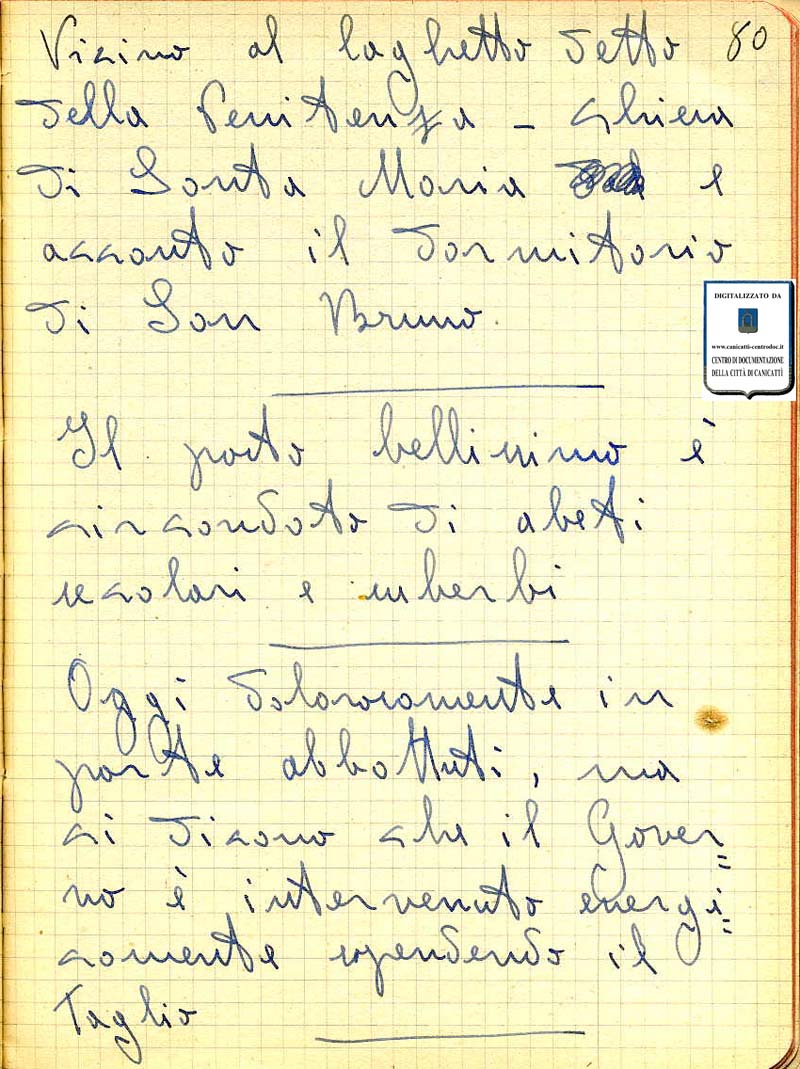 Vicino al laghetto detto 80
della Penitenza - chiesa
di Santa Maria e
accanto il dormitorio
di San Bruno.
DIGITALIZZATO DA
www.canicatti-centrodoc.it
CENTRO DI DOCUMENTAZIONE
DELLA CITTÀ DI CANICATTÌ
Il posto bellissimo è
circondato di abeti
secolari e superbi
Oggi dolorosamente in
parte abbattuti, ma
ci dicono che il Gover=
no è intervenuto energi=
camente sospendendo il
Taglio